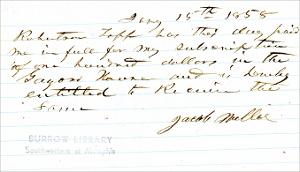 15th 1858
Robertson Topp has this day paid
me in full for my subscription
of one hundred dollars in the
House and is hereby
entitled to Receive the
Same
Jacob
BURROW LIBRARY
Southwestern at Memphis